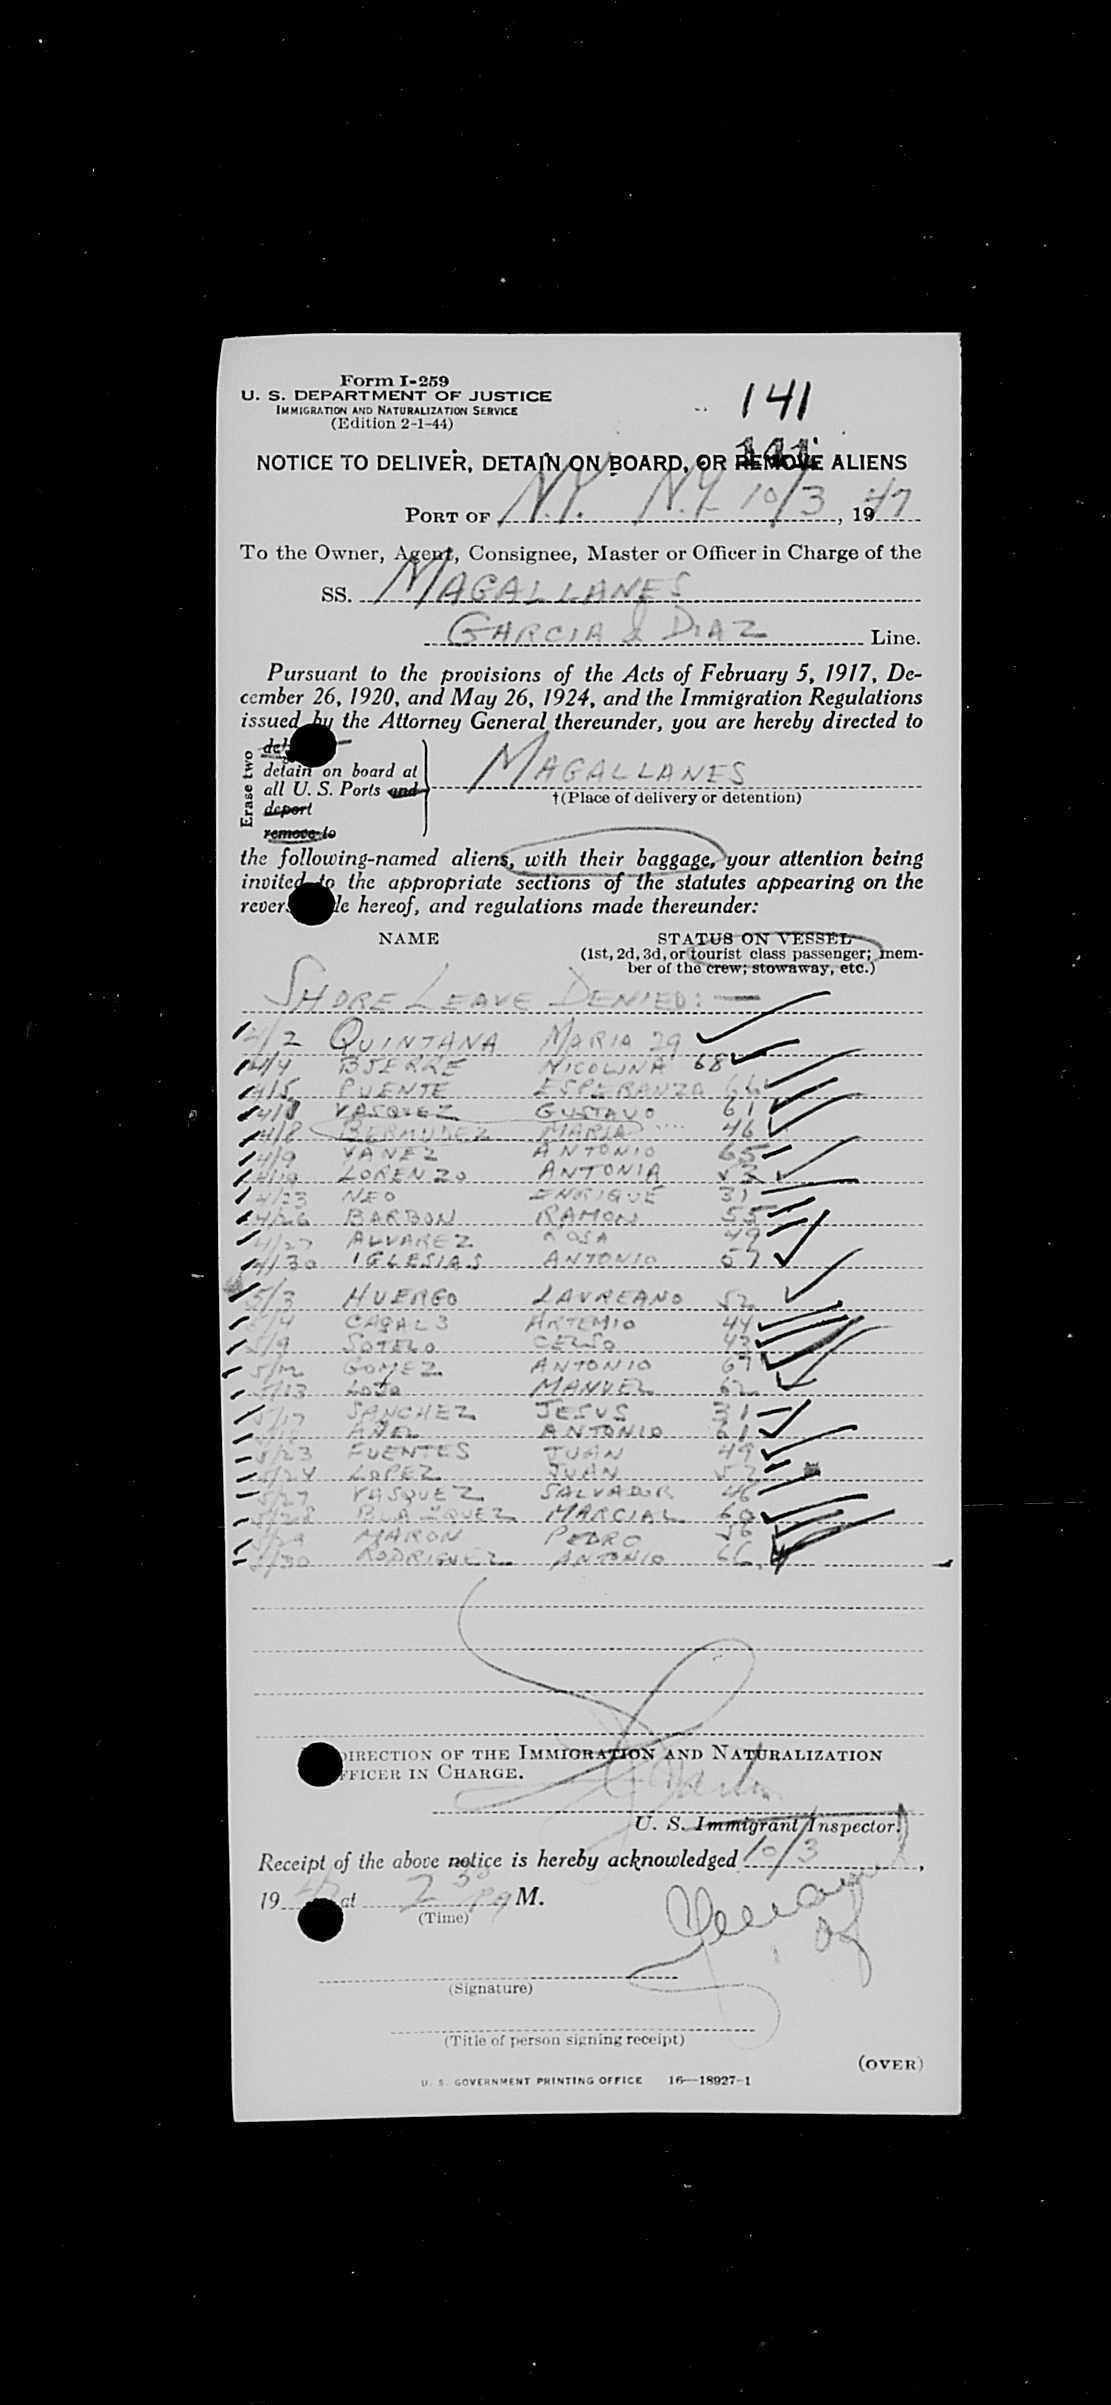 Form I-259
U. S. DEPARTMENT OF JUSTICE
IMMIGRATION AND NATURALIZATION SERVICE
(Edition 2-1-44)
141
141
NOTICE TO DELIVER, DETAIN ON BOARD, OR REMOVE ALIENS
PORT OF N.Y. N.Y. 10/3, 1947
To the Owner, Agent, Consignee, Master or Officer in Charge of the
SS. MAGALLANES
GARCIA & DIAZ Line.
Pursuant to the provisions of the Acts of February 5, 1917, De-
cember 26, 1920, and May 26, 1924, and the Immigration Regulations
issued by the Attorney General thereunder, you are hereby directed to
Erase two
detain on board at
all U. S. Ports and
deport
remove to
MAGALLANES
†(Place of delivery or detention)
the following-named aliens, with their baggage, your attention being
invited to the appropriate sections of the statutes appearing on the
hereof, and regulations made thereunder:
NAME STATUS ON VESSEL
(1st, 2d, 3d, or tourist class passenger; mem-
ber of the crew; stowaway, etc.)
SHORE LEAVE DENIED: —
4/2 QUINTANA MARIA 29
4/4 BJERRE NICOLINA 68
4/5 PUENTE ESPERANZA 66
VASQUEZ GUSTAVO 61
4/8 BERMUDEZ MARIA 46
4/9 YANEZ ANTONIO 65
LORENZO ANTONIA
4/23 NEO ENRIQUE 31
4/26 BARBON RAMON 55
4/27 ALVAREZ ROSA 49
4/30 IGLESIAS ANTONIO 57
5/3 HUERGO LAUREANO 52
5/4 ARTEMIO 44
5/9 SOTELO CELSO 43
5/12 GOMEZ ANTONIO 67
5/13 MANUEL 62
5/17 SANCHEZ JESUS 31
ANTONIO 61
5/23 FUENTES JUAN 49
5/24 LOPEZ JUAN 57
5/27 VASQUEZ SALVADOR 46
5/28 BLAZQUEZ MARCIAL 60
5/29 MARON PEDRO 56
5/30 RODRIGUEZ ANTONIO 66
DIRECTION OF THE IMMIGRATION AND NATURALIZATION
OFFICER IN CHARGE.
U. S. Immigrant Inspector.
Receipt of the above notice is hereby acknowledged 10/3,
1947 at 2 30 P M.
(Time)
(Signature)
(Title of person signing receipt)
(OVER)
U. S. GOVERNMENT PRINTING OFFICE 16—18927-1